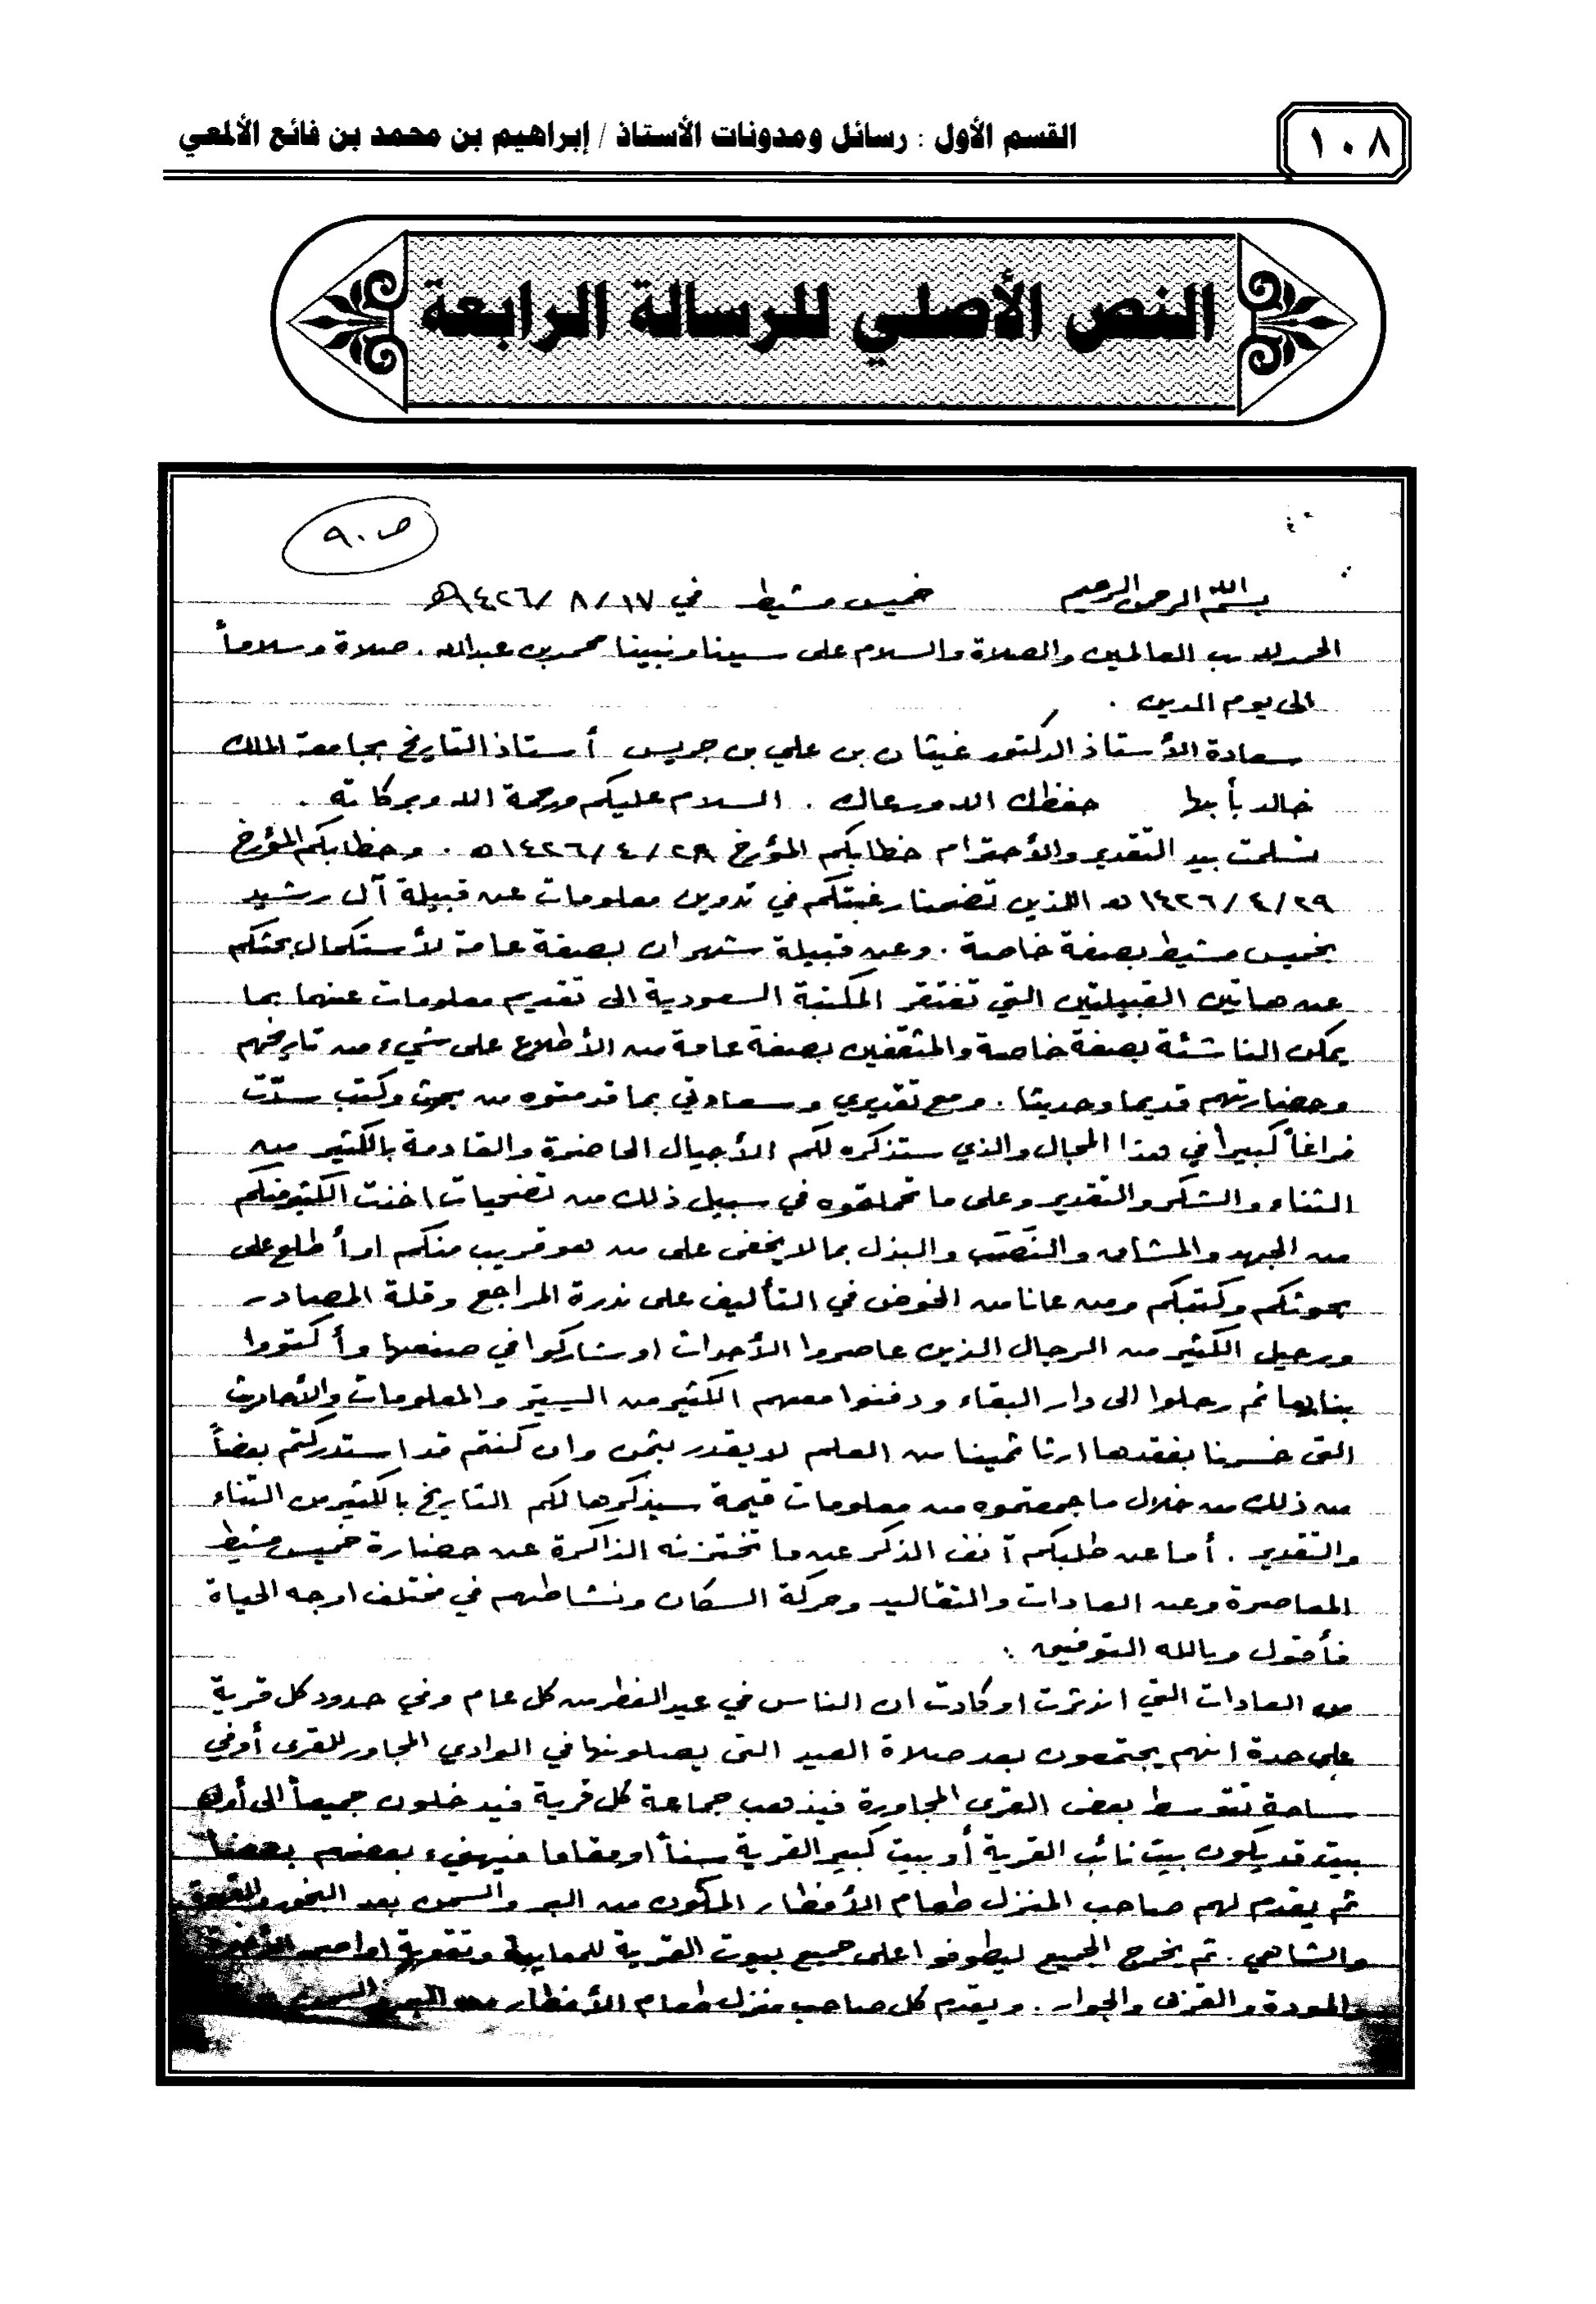 ١٠٨
القسم الأول : رسائل ومدونات الأستاذ / إبراهيم بن محمد بن فائع الألمعي
النص الأصلي للرسالة الرابعة
ص٩٠
بسم الله الرحمن الرحيم خميس مشيط في ١٤٢٦/٨/١٧هـ
الحمد لله رب العالمين والصلاة والسلام على سيدنا ونبينا محمد بن عبدالله . صلاة وسلاماً
الى يوم الدين .
سعادة الأستاذ الدكتور غيثان بن علي بن جريس أستاذ التاريخ بجامعة الملك
خالد بأبها حفظك الله ورعاك . السلام عليكم ورحمة الله وبركاته .
تسلمت بيد التقدير والأحترام خطابكم المؤرخ ١٤٢٦/٤/٢٨هـ . وخطابكم المؤرخ
١٤٢٦/٤/٢٩هـ اللذين تضمنا رغبتكم في تدوين معلومات عن قبيلة آل رشيد
بخميس مشيط بصفة خاصة . وعن قبيلة شهران بصفة عامة لأستكمال بحثكم
عن هاتين القبيلتين التي تفتقر المكتبة السعودية الى تقديم معلومات عنهما بما
يمكن الناشئة بصفة خاصة والمثقفين بصفة عامة من الأطلاع على شيء من تاريخهم
وحضارتهم قديما وحديثا . ومع تقديري وسعادتي بما قدمتوه من بحوث وكتب سدّت
فراغاً كبيرا في هذا المجال والذي ستذكره لكم الأجيال الحاضرة والقادمة بالكثير من
الثناء والشكر والتقدير وعلى ما تحملتوه في سبيل ذلك من تضحيات اخذت الكثير منكم
من الجهد والمشاق والنصَب والبذل بما لا يخفى على من هو قريب منكم او أطلع على
بحوثكم وكتبكم ومن عانا من الخوض في التأليف على ندرة المراجع وقلة المصادر
ورحيل الكثير من الرجال الذين عاصروا الأحداث او شاركوا في صنعها وأكتووا
بنارها ثم رحلوا الى دار البقاء ودفنوا معهم الكثير من السير والمعلومات والأحاديث
التي خسرنا بفقدها ارثا ثمينا من العلم لا يقدر بثمن وان كنتم قد استدركتم بعضاً
من ذلك من خلال ما جمعتموه من معلومات قيمة سيذكرها لكم التاريخ بالكثير من الثناء
والتقدير . أما عن طلبكم آنف الذكر عن ما تختزنه الذاكرة عن حضارة خميس مشيط
المعاصرة وعن العادات والتقاليد وحركة السكان ونشاطهم في مختلف اوجه الحياة
فأقول وبالله التوفيق :
من العادات التي اندثرت او كادت ان الناس في عيد الفطر من كل عام وفي حدود كل قرية
على حدة انهم يجتمعون بعد صلاة العيد التي يصلونها في الوادي المجاور للقرى أو في
ساحة تتوسط بعض القرى المجاورة فيذهب جماعة كل قرية فيدخلون جميعاً الى أول
بيت قد يكون بيت نائب القرية أو بيت كبير القرية سناً او مقاما فيهنيء بعضهم بعضاً
ثم يقدم لهم صاحب المنزل طعام الأفطار المكون من البر والسمن بعد البخور والقهوة
والشاهي . ثم يخرج الجميع ليطوفوا على جميع بيوت القرية للمعايدة وتقوية اواصر الأخوة
والمودة والقربى والجوار . ويقدم كل صاحب منزل طعام الأفطار من البر والسمن